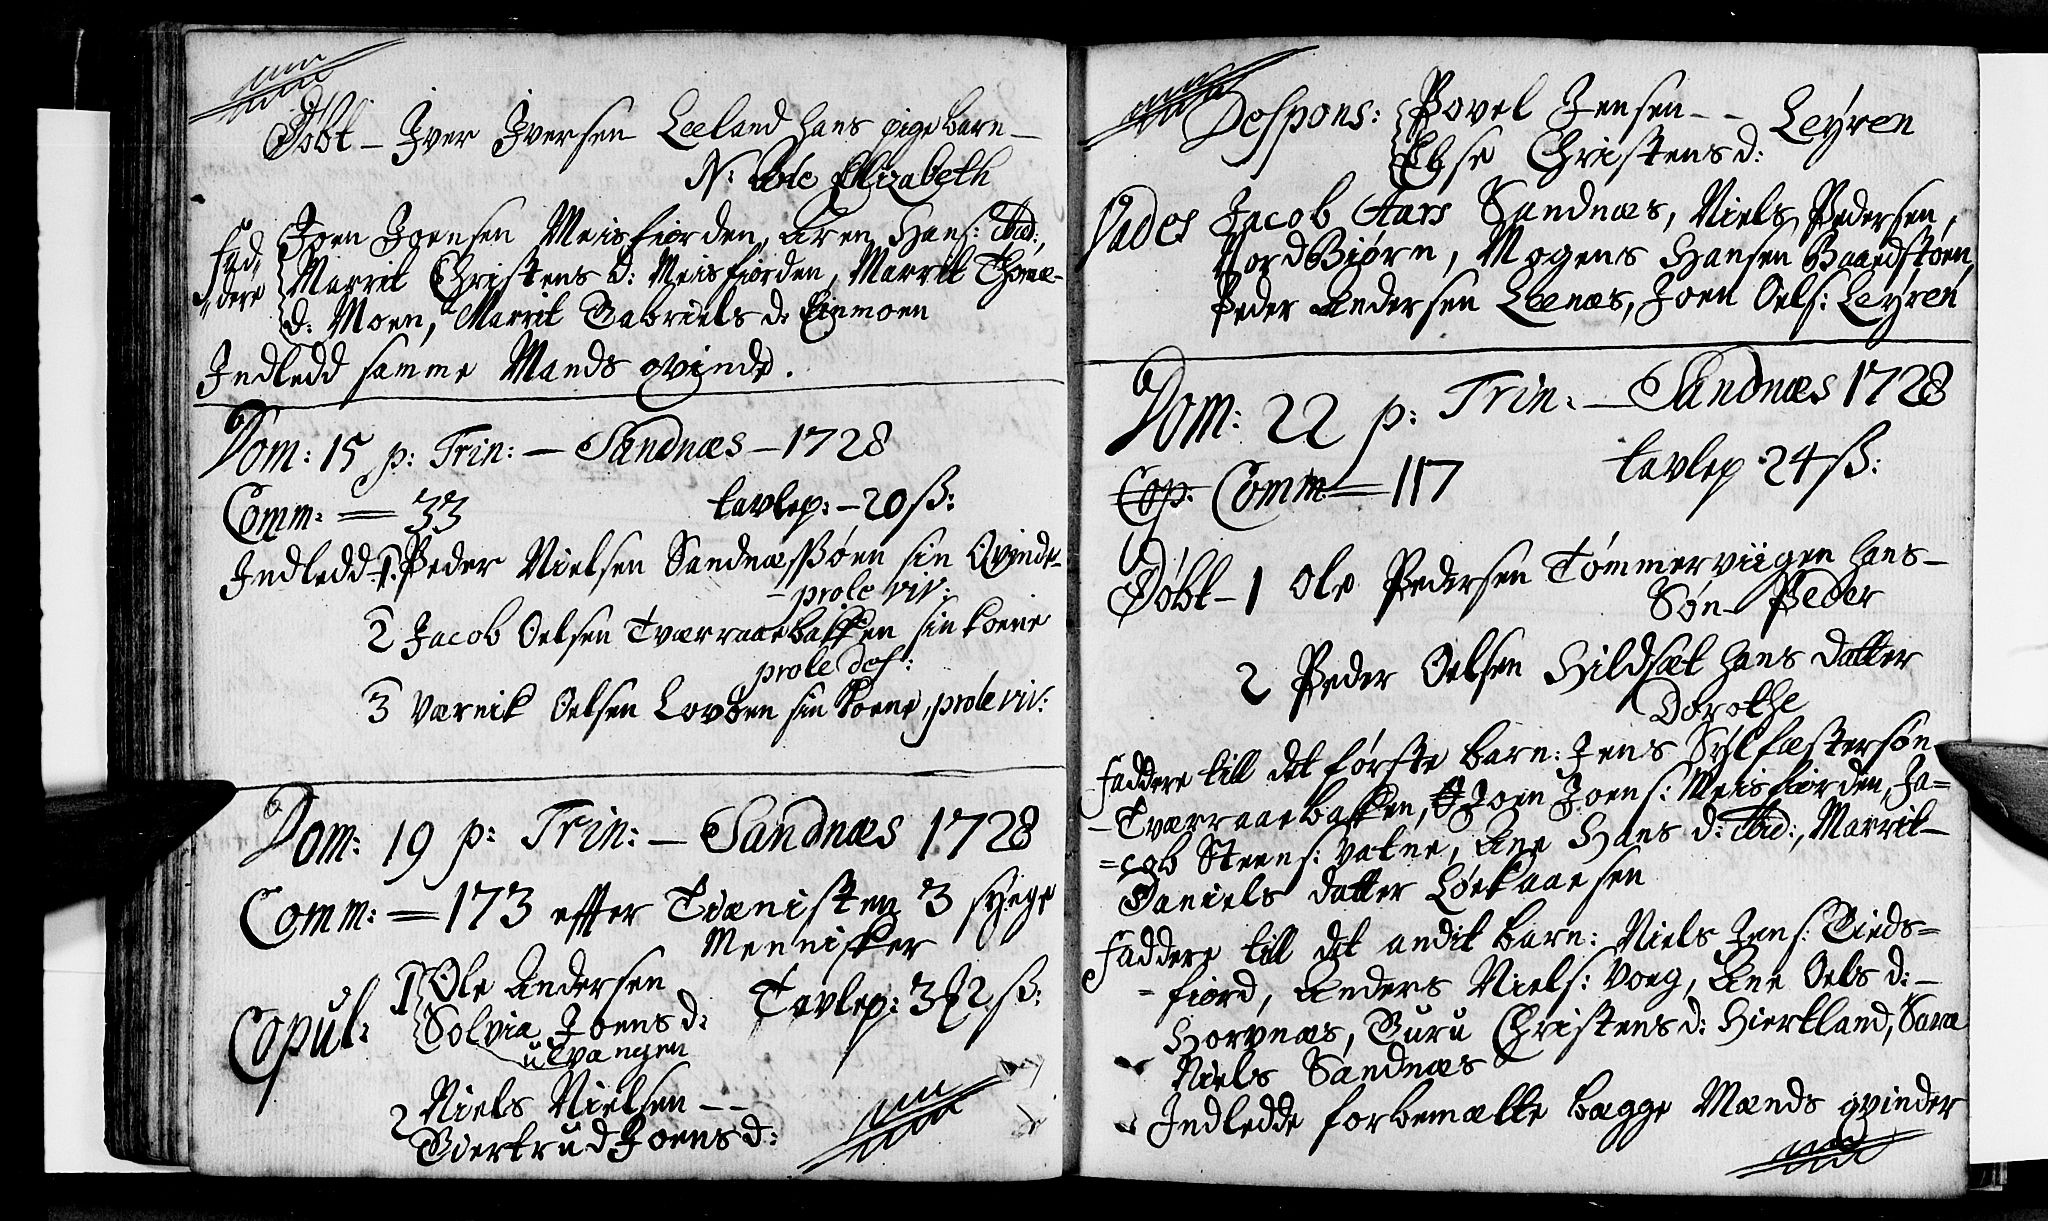 Døbt – Iver Iversen Leeland hans pigebarn –
N: Elizabeth
Fad, Joen Joensen Meisfiorden, Aren Hans: Ibid:,
dere Marrit Christens d: Meisfiorden, Marrit Thomæ-
d: Moen, Marrit Gabriels d:
Indledd samme Mands qvinde.
Dom: 15 p: Trin: – Sandnæs – 1728
Comm: = 33 tavlep: – 20 ß:
Indledd 1. Peder Nielsen Sandnæssøen sin Qvinde –
– prole viv:
2 Jacob Oelsen Tværraaebakken sin koene
prole def:
3 Værnik Oelsen Lovöen sin koene, prole viv:
Dom: 19 p: Trin: – Sandnæs 1728
Comm: = 173 effter Tienisten 3 syege
Mennisker
Copul: 1 Ole Andersen Tavlep: 3 2 ß:
Solvia Joens d:
ulvangen
2 Niels Nielsen – –
Giertrud Joens d:
Despons: Povel Jensen – – Leyren
Else Christens d:
Vades Jacob Aars Sandnæs, Niels Pedersen,
NordBiörn, Mogens Hansen Baardstöen,
Peder Andersen Leenæs, Joen Oels: Leyren
Dom: 22 p: Trin: – Sandnæs 1728
Cop: Comm: = 117 tavlep 24 ß:
Döbt – 1 Ole Pedersen Tømmerviigen hans –
Søn – Peder
2 Peder Oelsen Hildsæt hans datter
Dorothe
Faddere till det første barn: Jens Sylfæstersön
– Tværraaebakken, Joen Joens: Meisfiorden, Ja=
=cob Steens: Vatne, Ane Hans d: Ibid:, Marrit –
Daniels datter Løekaaesen
Faddere till det andit barn: Niels Jens: Bieds=
= fiord, Anders Niels: Voeg, Ane Oels d: –
Horvnæs, Guru Christens d: Hiertland, Sara
Niels Sandnæs
Indledde forbemælte begge Mænds qvinder